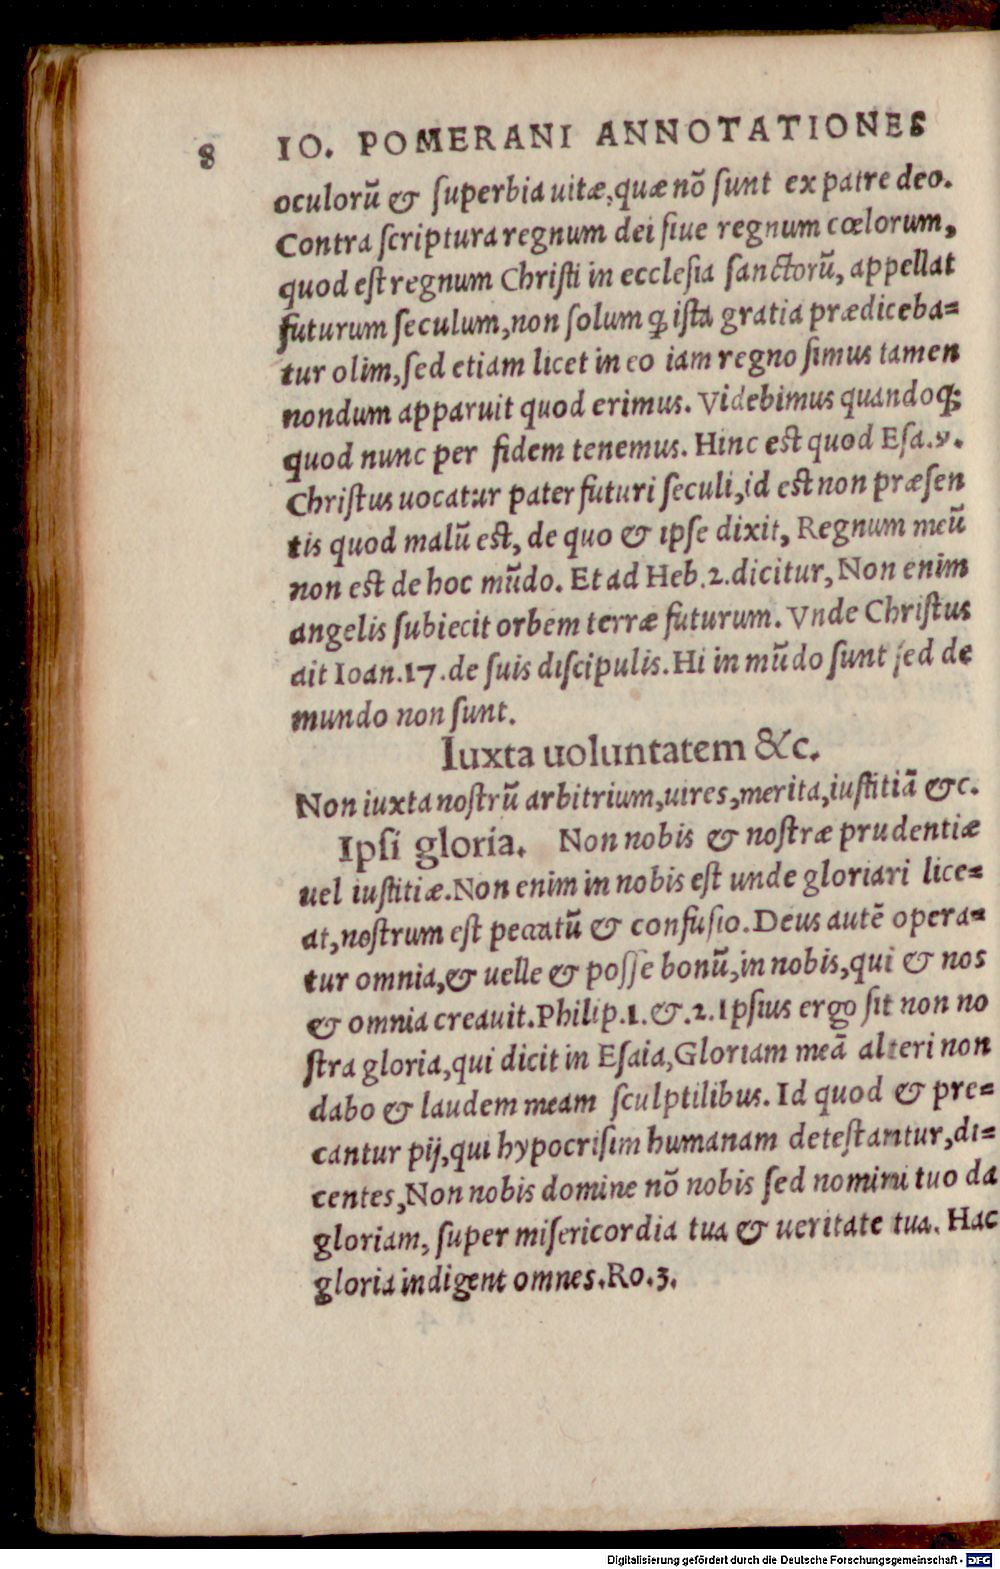 8 IO. POMERANI ANNOTATIONES
oculorũ & ſuperbia uitæ, quæ nõ ſunt ex patre deo.
Contra ſcriptura regnum dei ſiue regnum cœlorum,
quod eſt regnum Chriſti in ecclesia ſanctorũ, appellat
futurum ſeculum, non ſolum ꝙ iſta gratia prædiceba=
tur olim, ſed etiam licet in eo iam regno ſimus tamen
nondum apparuit quod erimus. Videbimus quandoq;
quod nunc per fidem tenemus. Hinc eſt quod Eſa. 9.
Chriſtus uocatur pater futuri ſeculi, id eſt non præſen
tis quod malũ eſt, de quo & ipſe dixit, Regnum meũ
non eſt de hoc mũdo. Et ad Heb. 2. dicitur, Non enim
angelis ſubiecit orbem terræ futurum. Vnde Chriſtus
ait Ioan. 17. de ſuis diſcipulis. Hi in mũdo ſunt ſed de
mundo non ſunt.
Iuxta uoluntatem &c.
Non iuxta noſtrũ arbitrium, uires, merita, iuſtitiã &c.
Ipſi gloria. Non nobis & noſtræ prudentiæ
uel iuſtitiæ. Non enim in nobis eſt unde gloriari lice=
at, noſtrum eſt peccatũ & confuſio. Deus autẽ opera=
tur omnia, & uelle & poſſe bonũ, in nobis, qui & nos
& omnia creauit. Philip. 1. &. 2. Ipſius ergo ſit non no
ſtra gloria, qui dicit in Eſaia, Gloriam meã alteri non
dabo & laudem meam ſculptilibus. Id quod & pre=
cantur pij, qui hypocriſim humanam deteſtantur, di=
centes, Non nobis domine nõ nobis ſed nomini tuo da
gloriam, ſuper miſericordia tua & ueritate tua. Hac
gloria indigent omnes. Ro. 3.
Digitalisierung gefördert durch die Deutsche Forschungsgemeinschaft - DFG